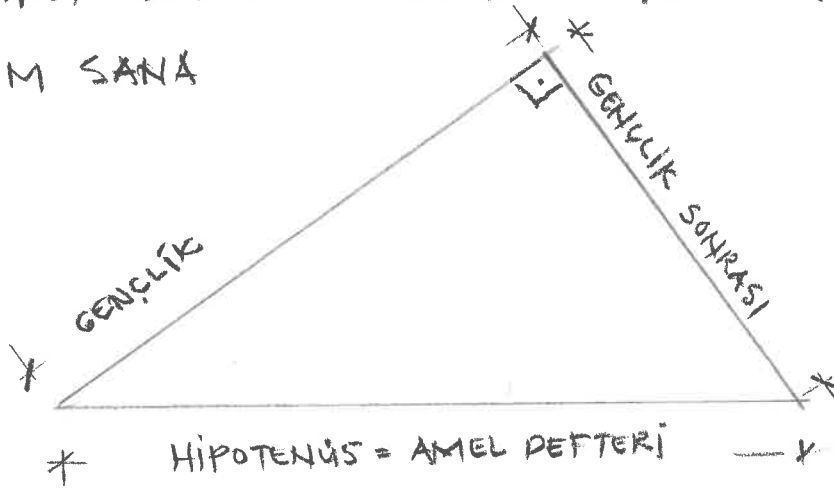 M SANA
GENÇLİK
GENÇLİK SONRASI
HİPOTENÜS = AMEL DEFTERİ